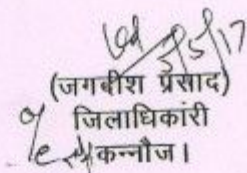 5/5/17
(जगदीश प्रसाद)
जिलाधिकारी
कन्नौज।